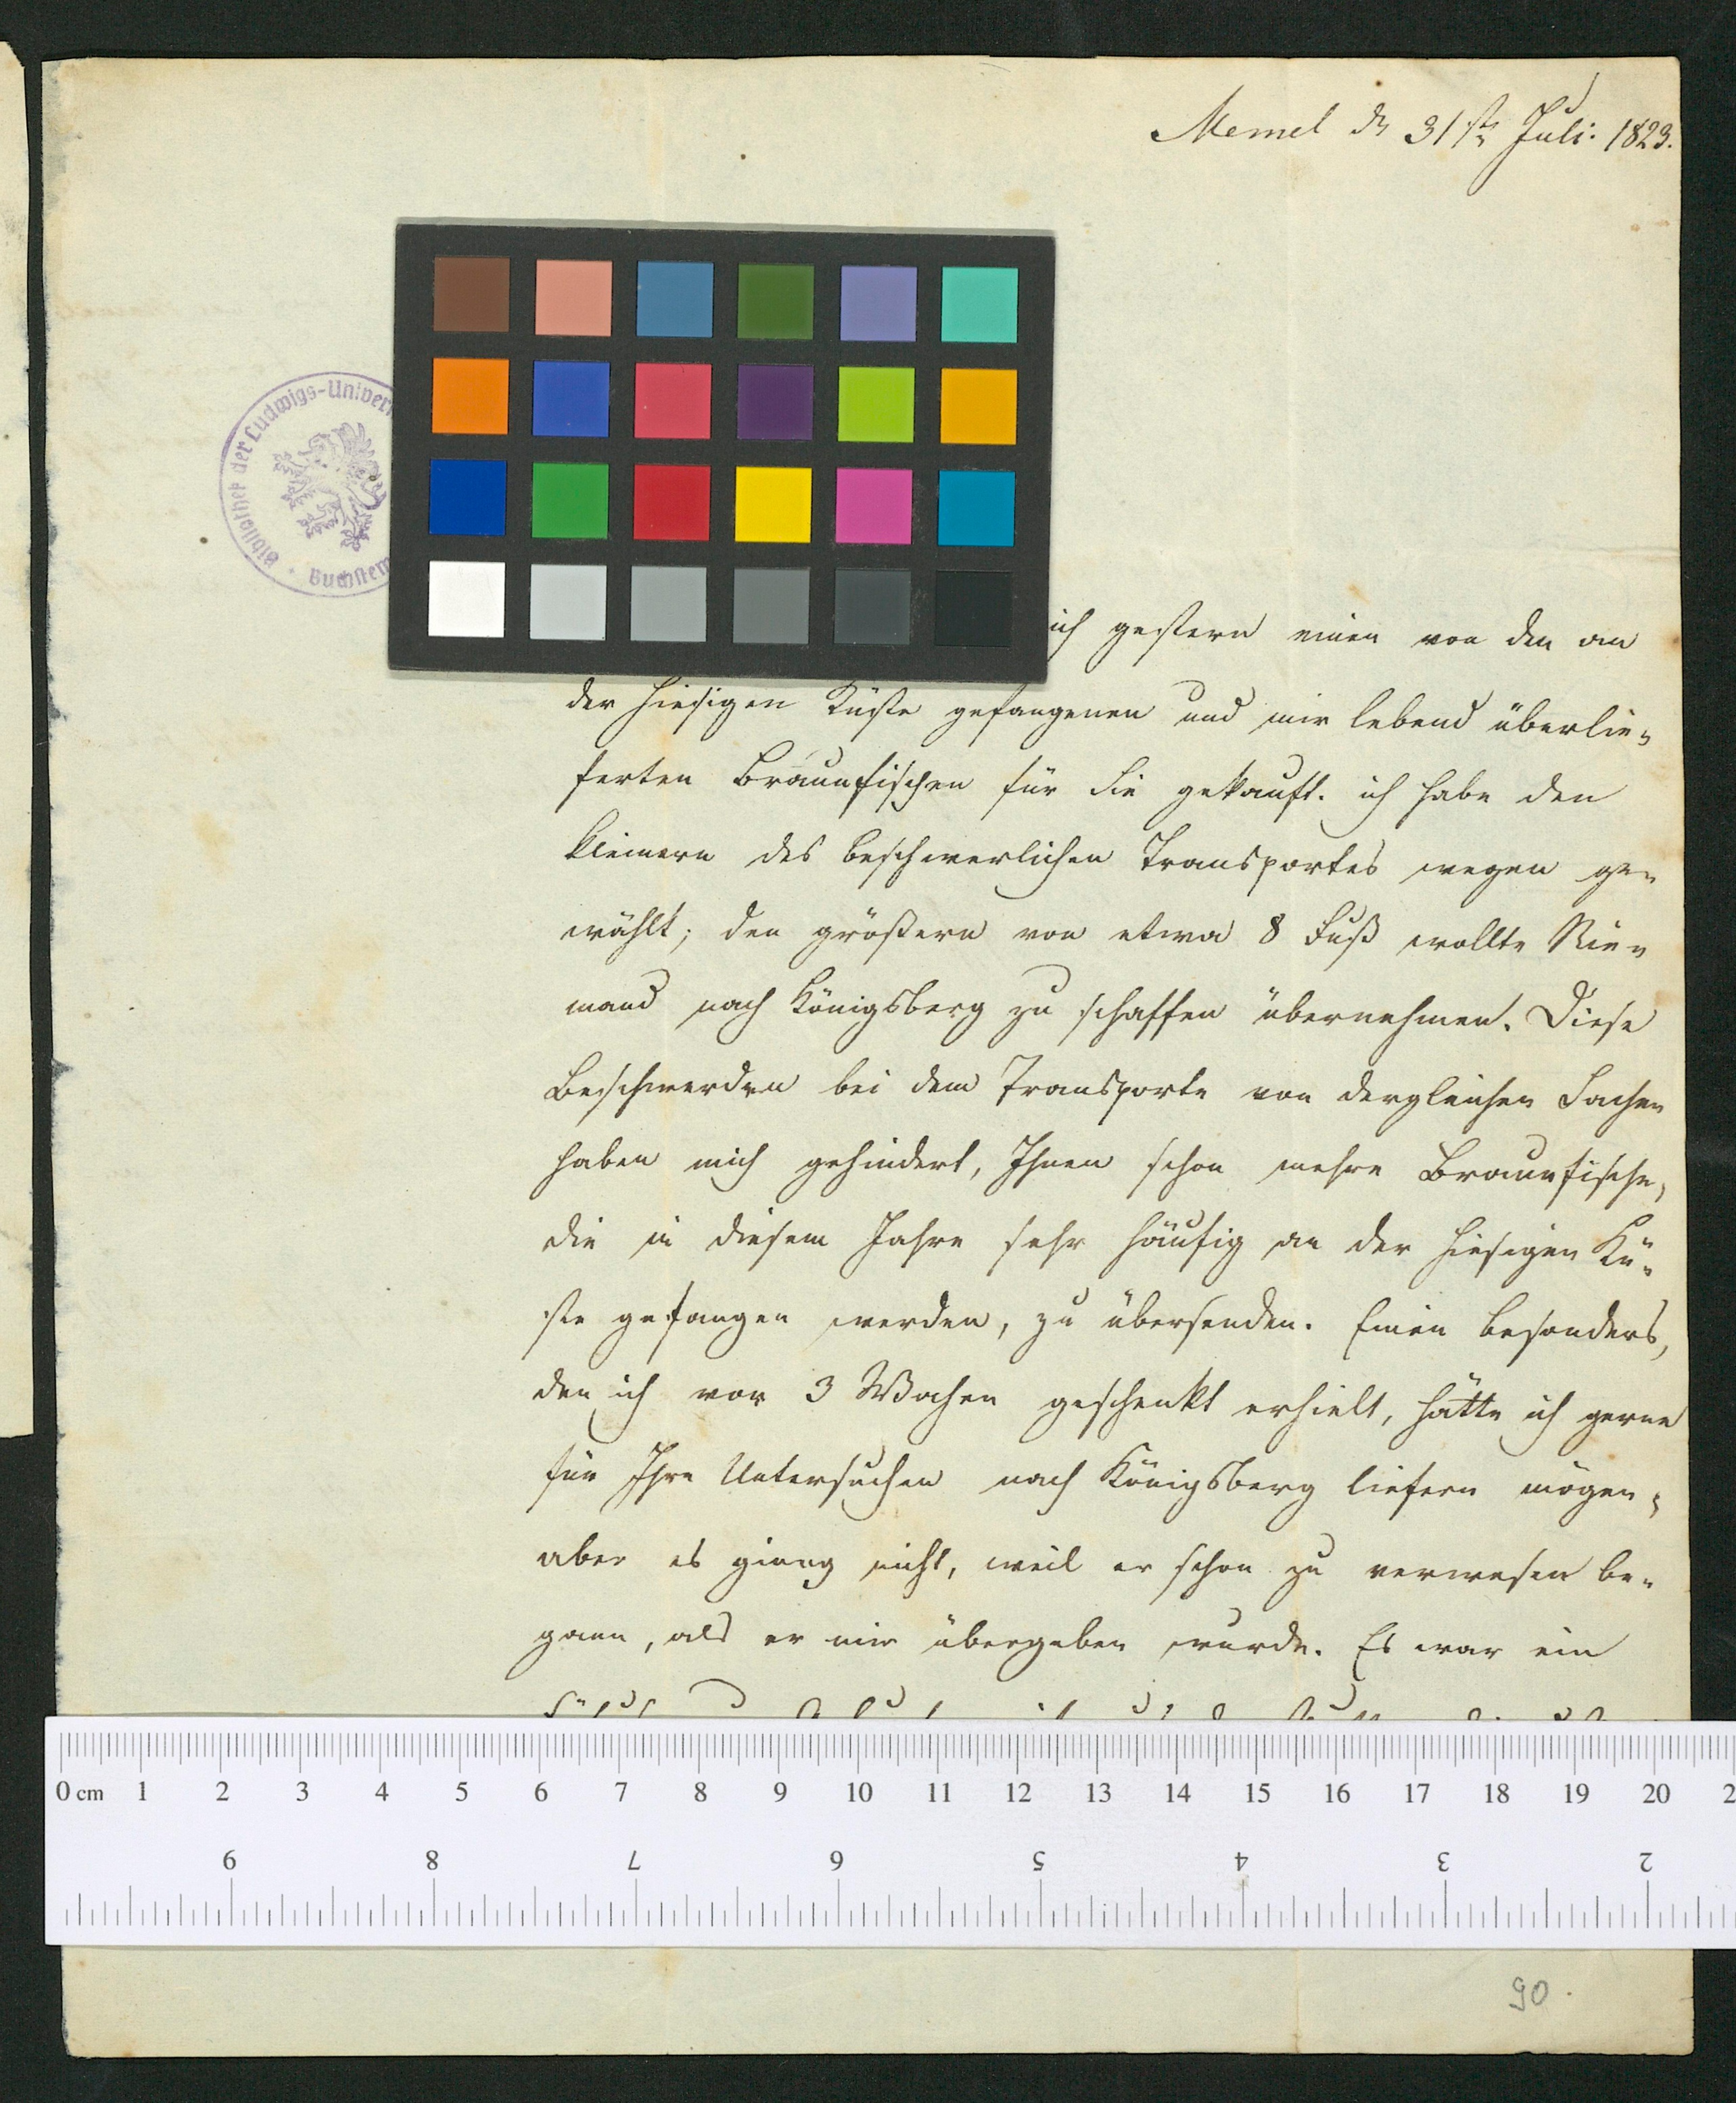 Memel den 31sten Juli. 1823.
Bibliothek der Ludwigs-Univer
ich gestern einen von den an
der hiesigen Küste gefangenen und mir lebend überlie-
ferten Braunfischen für Sie gekauft. ich habe den
kleinern des beschwerlichen Transportes wegen ge-
wählt; den größern von etwa 8 Fuß wollte Nie-
mand nach Königsberg zu schaffen übernehmen. Diese
Beschwerden bei dem Transporte von dergleichen Sachen
haben mich gehindert, Ihnen schon mehre Braunfische,
die in diesem Jahre sehr häufig an der hiesigen Kü-
ste gefangen werden, zu übersenden. Einen besonders,
den ich vor 3 Wochen geschenkt erhielt, hätte ich gerne
für Ihre Untersuchen nach Königsberg liefern mögen;
aber es gieng nicht, weil er schon zu verwesen be-
gann, als er mir übergeben wurde. Es war ein
0 cm 1 2 3 4 5 6 7 8 9 10 11 12 13 14 15 16 17 18 19 20 2
9 8 7 6 5 4 3 2
90.